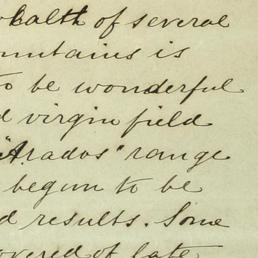 wealth of several
ountains is
to be wonderful
d virgin field
"Arados" range
begun to be
d results. Some
overed of late